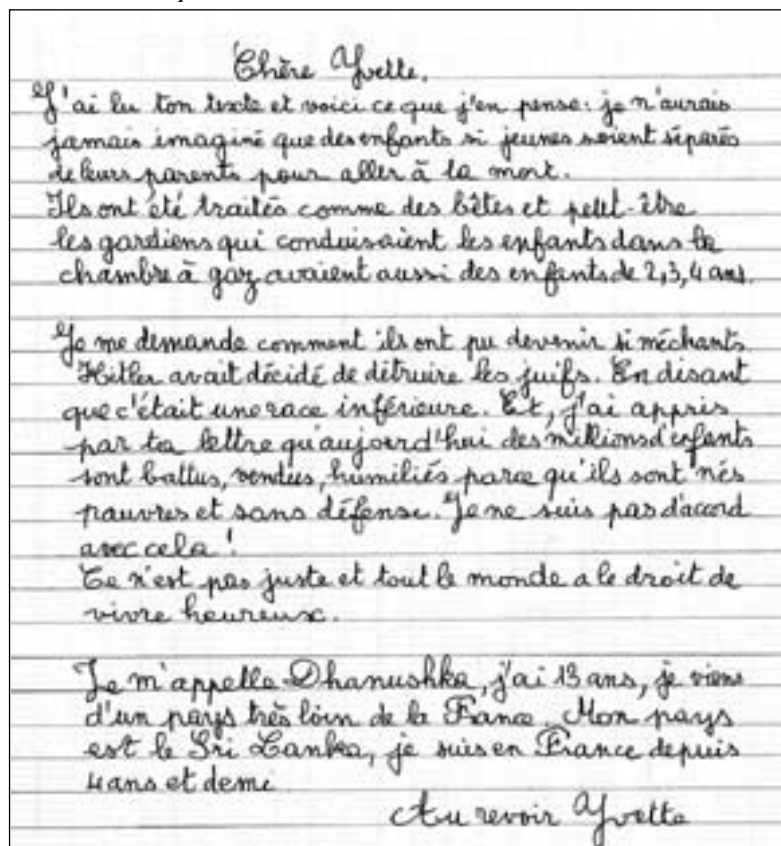 Chère Yvette.
J'ai lu ton texte et voici ce que j'en pense: je n'aurais
jamais imaginé que des enfants si jeunes soient séparés
de leurs parents pour aller à la mort.
Ils ont été traités comme des bêtes et petit-être
les gardiens qui conduisaient les enfants dans la
chambre à gaz avaient aussi des enfants de 2,3,4 ans.
Je me demande comment ils ont pu devenir si méchants
Hitler avait décidé de détruire les juifs. En disant
que c'était une race inférieure. Et, j'ai appris
par ta lettre qu'aujourd'hui des millions d'enfants
sont battus, vendus, humiliés parce qu'ils sont nés
pauvres et sans défense. Je ne suis pas d'accord
avec cela !
Ce n'est pas juste et tout le monde a le droit de
vivre heureux.
Je m'appelle Dhanushka, j'ai 13 ans, je viens
d'un pays très loin de la France. Mon pays
est le Sri Lanka, je suis en France depuis
4 ans et demi
Au revoir Yvette